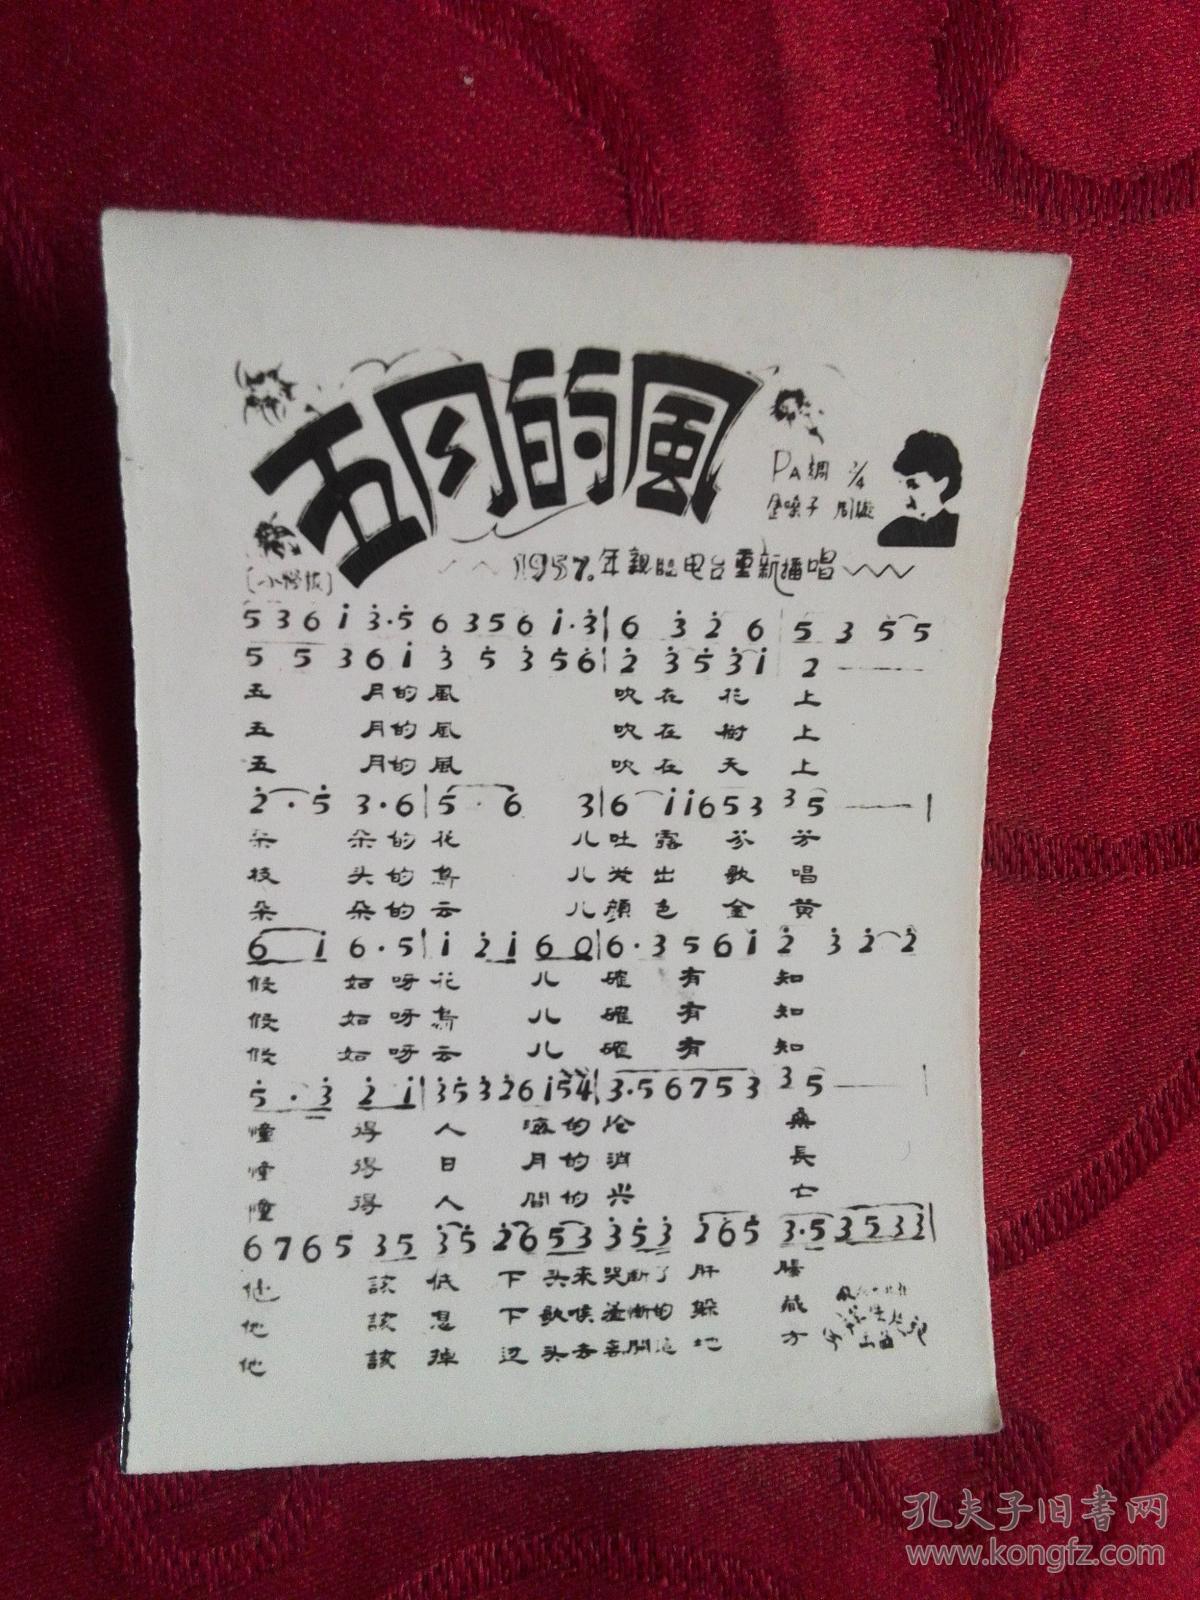 五月的風
PA調 2/4
金嗓子 周璇
1957.年親臨电台重新播唱
(小慢板)
5 3 6 i 3·5 6 3 5 6 i·3 | 6 3 2 6 | 5 3 5 5
5 5 3 6 i 3 5 3 5 6 | 2 3 5 3 i 2 — — —
五 月的風 吹在 花 上
五 月的風 吹在 樹 上
五 月的風 吹在 天 上
2 · 5 3·6 | 5 · 6 3 | 6 i i 6 5 3 3 5 — — |
朵 朵的花 儿吐露 芬 芳
枝 头的鳥 儿发出 歌 唱
朵 朵的云 儿顔色 金 黄
6 i 6·5 | i 2 i 6 0 | 6·3 5 6 i 2 3 2 2
假 如呀花 儿 確 有 知
假 如呀鳥 儿 確 有 知
假 如呀云 儿 確 有 知
5 · 3 2 i | 3 5 3 2 6 i 5 4 | 3·5 6 7 5 3 3 5 — — |
懂 得 人 海的沧 桑
懂 得 日 月的消 長
懂 得 人 間的兴 亡
6 7 6 5 3 5 3 5 2 6 5 3 3 5 3 2 6 5 3·5 3 5 3 3 |
他 該 低 下 头來哭断了 肝 腸
他 該 息 下 歌喉羞惭的 躲 藏
他 該 掉 过 头去 离開这 地 方
孔夫子旧書网
www.kongfz.com